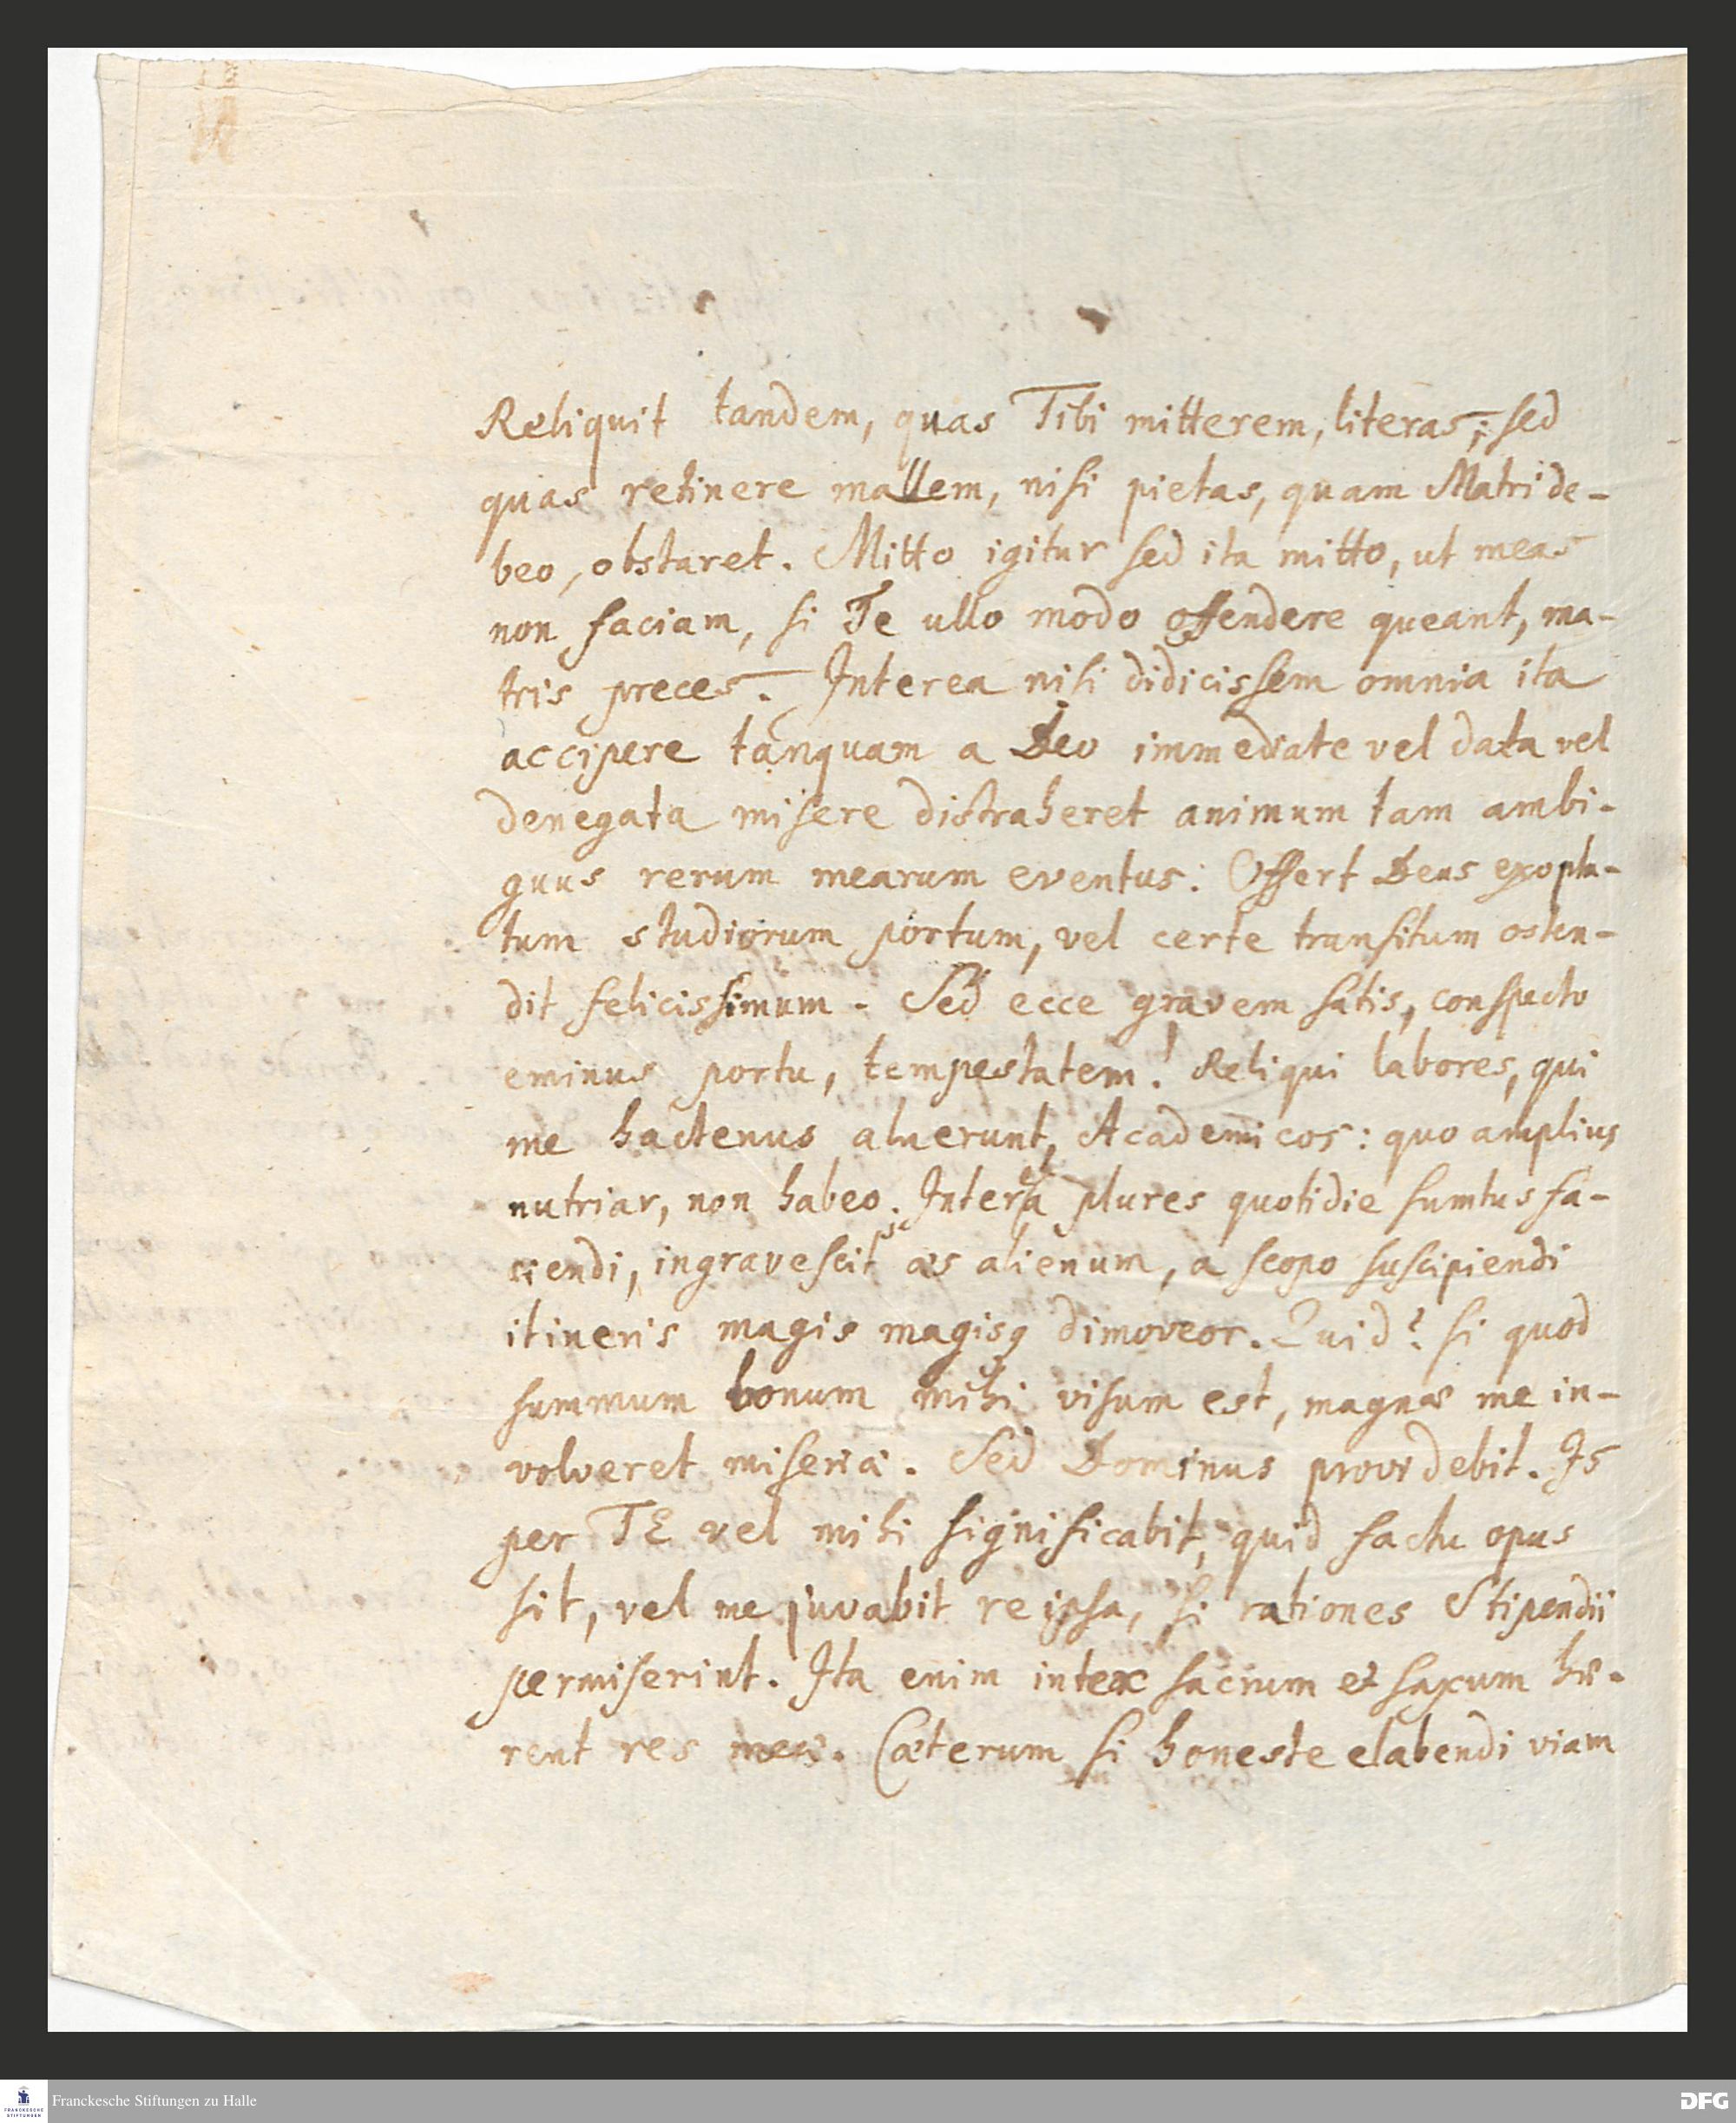 Reliquit tandem, quas Tibi mitterem, literas; sed
quas retinere mallem, nisi pietas, quam Matri de-
beo, obstaret. Mitto igitur sed ita mitto, ut meas
non faciam, si Te ullo modo offendere queant, ma-
tris preces. Interea nisi didicissem omnia ita
accipere tanquam a Deo immediate vel data vel
denegata misere distraheret animum tam ambi-
guus rerum mearum eventus: Offert Deus exopta-
tum studiorum portum, vel certe transitum osten-
dit felicissimum. Sed ecce gravem satis, conspecto
eminus portu, tempestatem! Reliqui labores, qui
me hactenus aluerunt, Academicos: quo amplius
nutriar, non habeo. Interea plures quotidie sumtus fa-
ciendi, ingravescit æs alienum, a scopo suscipiendi
itineris magis magisq dimoveor. Quid? si quod
summum bonum mihi visum est, magnæ me in-
volveret miseriæ. Sed Dominus providebit. Is
per TE vel mihi significabit, quid factu opus
sit, vel me juvabit re ipsa, si rationes Stipendii
permiserint. Ita enim inter sacrum et saxum hæ-
rent res meæ. Cæterum si honeste elabendi viam
Franckesche Stiftungen zu Halle
FRANCKESCHE
STIFTUNGEN
DFG